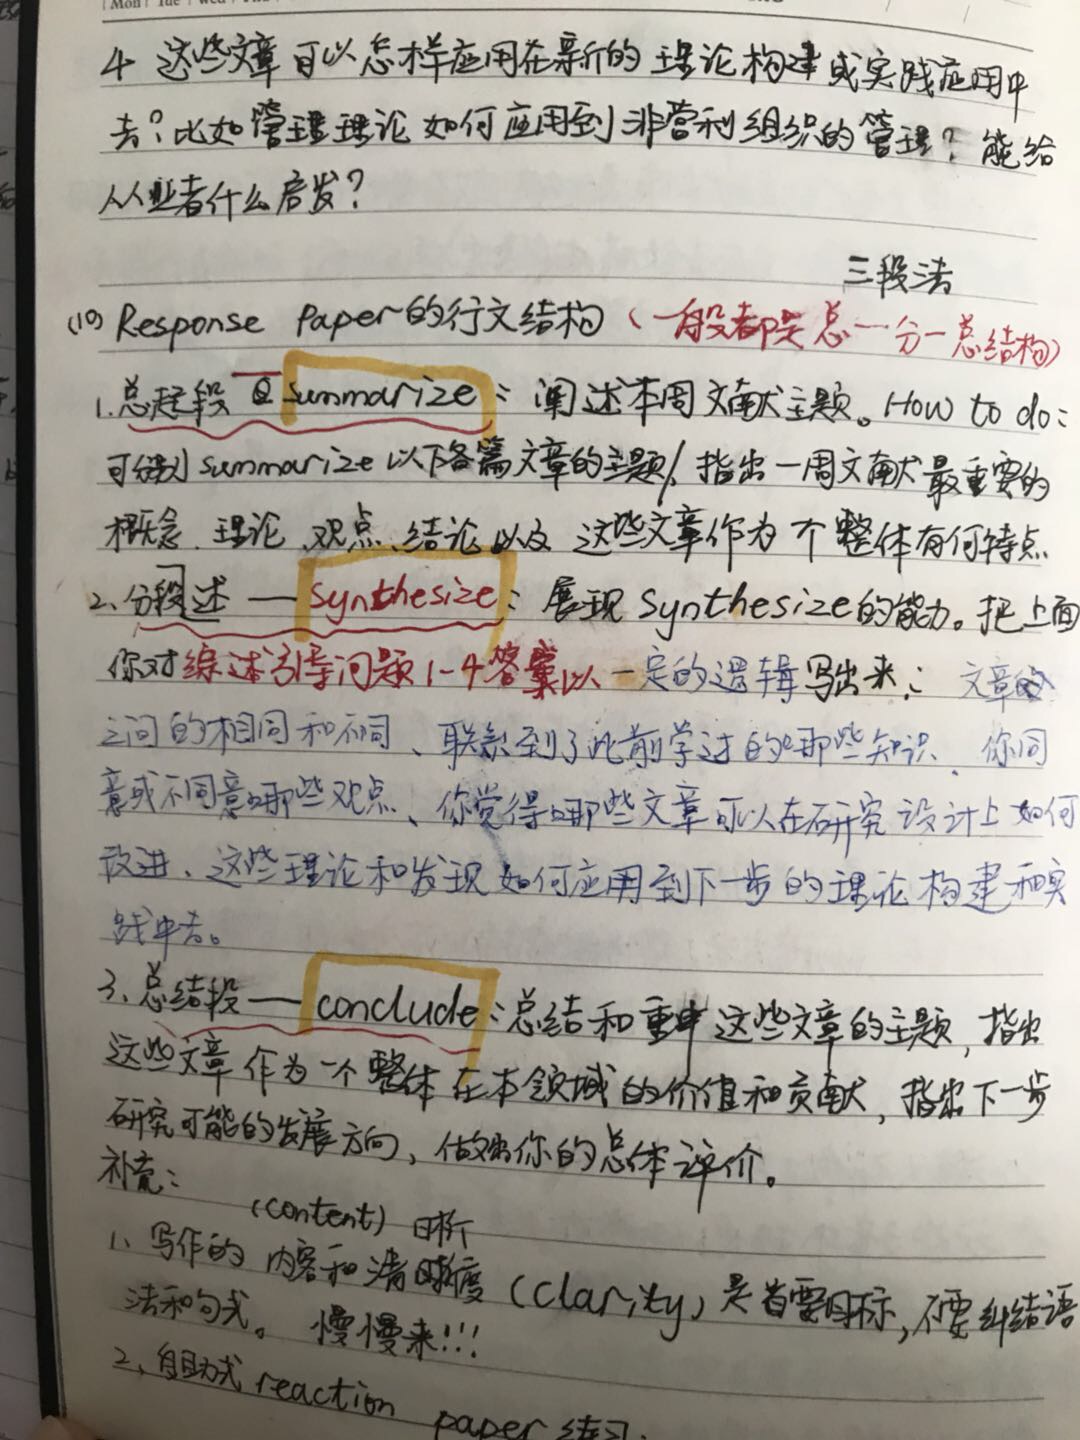 4 这些文章可以怎样应用在新的理论构建或实践应用中
去?比如管理理论如何应用到非营利组织的管理?能给
从业者什么启发?
三段法
(10) Response Paper的行文结构(一般都是总一分一总结构)
1.总起段 summarize: 阐述本周文献主题。How to do:
可分别summarize以下各篇文章的主题,指出一周文献最重要的
概念、理论、观点、结论以及 这些文章作为 个整体有何特点
2、分段述 — synthesize: 展现 synthesize的能力。把上面
你对综述引导问题1-4答案以一定的逻辑写出来: 文章
之间的相同和不同、联系到了此前学过的哪些知识、你同
意或不同意哪些观点、你觉得哪些文章可以在研究设计上如何
改进、这些理论和发现如何应用到下一步的理论构建和实
践中去。
3、总结段 — conclude:总结和重申这些文章的主题,指出
这些文章作为一个整体在本领域的价值和贡献,指出下一步
研究可能的发展方向,做出你的总体评价。
补充:
(content) 晰
1、写作的 内容和清晰度(clarity)是首要目标,不要纠结语
法和句式。慢慢来!!!
2、自助式reaction paper练习.